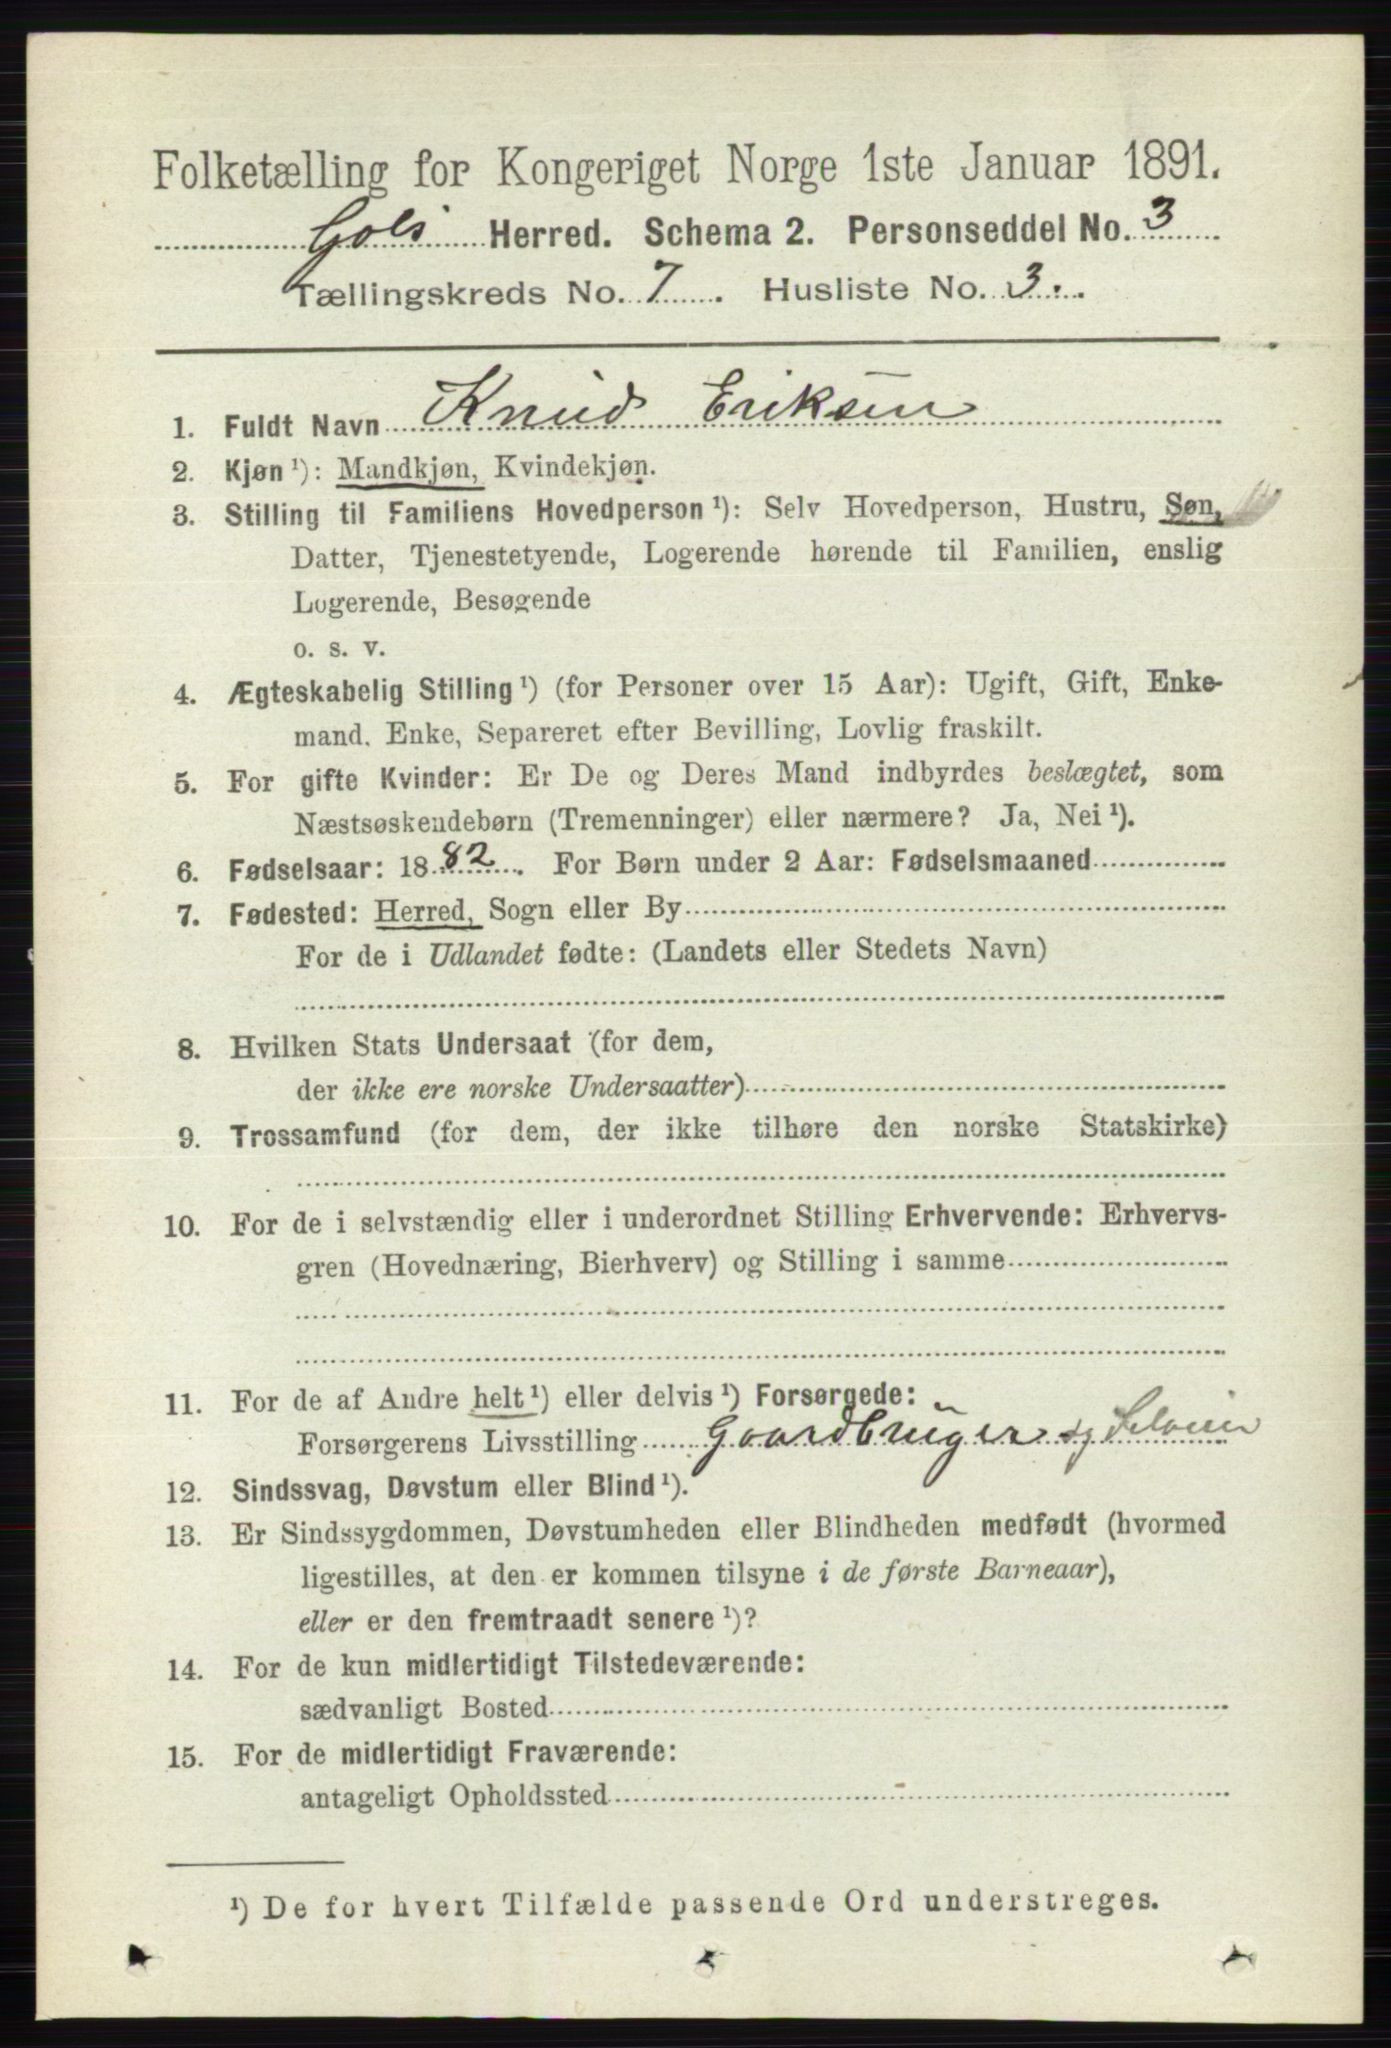 Folketælling for Kongeriget Norge 1ste Januar 1891.
Gols Herred. Schema 2. Personseddel No. 3
Tællingskreds No. 7. Husliste No. 3.
1. Fuldt Navn Knud Eriksen
2. Kjøn¹): Mandkjøn, Kvindekjøn.
3. Stilling til Familiens Hovedperson¹): Selv Hovedperson, Hustru, Søn,
Datter, Tjenestetyende, Logerende hørende til Familien, enslig
Logerende, Besøgende
o. s. v.
4. Ægteskabelig Stilling¹) (for Personer over 15 Aar): Ugift, Gift, Enke-
mand, Enke, Separeret efter Bevilling, Lovlig fraskilt.
5. For gifte Kvinder: Er De og Deres Mand indbyrdes beslægtet, som
Næstsøskendebørn (Tremenninger) eller nærmere? Ja, Nei¹).
6. Fødselsaar: 1882. For Børn under 2 Aar: Fødselsmaaned
7. Fødested: Herred, Sogn eller By
For de i Udlandet fødte: (Landets eller Stedets Navn)
8. Hvilken Stats Undersaat (for dem,
der ikke ere norske Undersaatter)
9. Trossamfund (for dem, der ikke tilhøre den norske Statskirke)
10. For de i selvstændig eller i underordnet Stilling Erhvervende: Erhvervs-
gren (Hovednæring, Bierhverv) og Stilling i samme
11. For de af Andre helt¹) eller delvis¹) Forsørgede:
Forsørgerens Livsstilling Gaardbruger og Selveier
12. Sindssvag, Døvstum eller Blind¹).
13. Er Sindssygdommen, Døvstumheden eller Blindheden medfødt (hvormed
ligestilles, at den er kommen tilsyne i de første Barneaar),
eller er den fremtraadt senere¹)?
14. For de kun midlertidigt Tilstedeværende:
sædvanligt Bosted
15. For de midlertidigt Fraværende:
antageligt Opholdssted
¹) De for hvert Tilfælde passende Ord understreges.